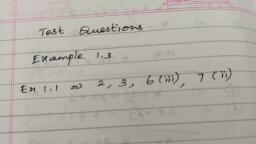 Test Questions
Example 1.3
Ex 1.1 => 2, 3, 6(iii), 7(ii)